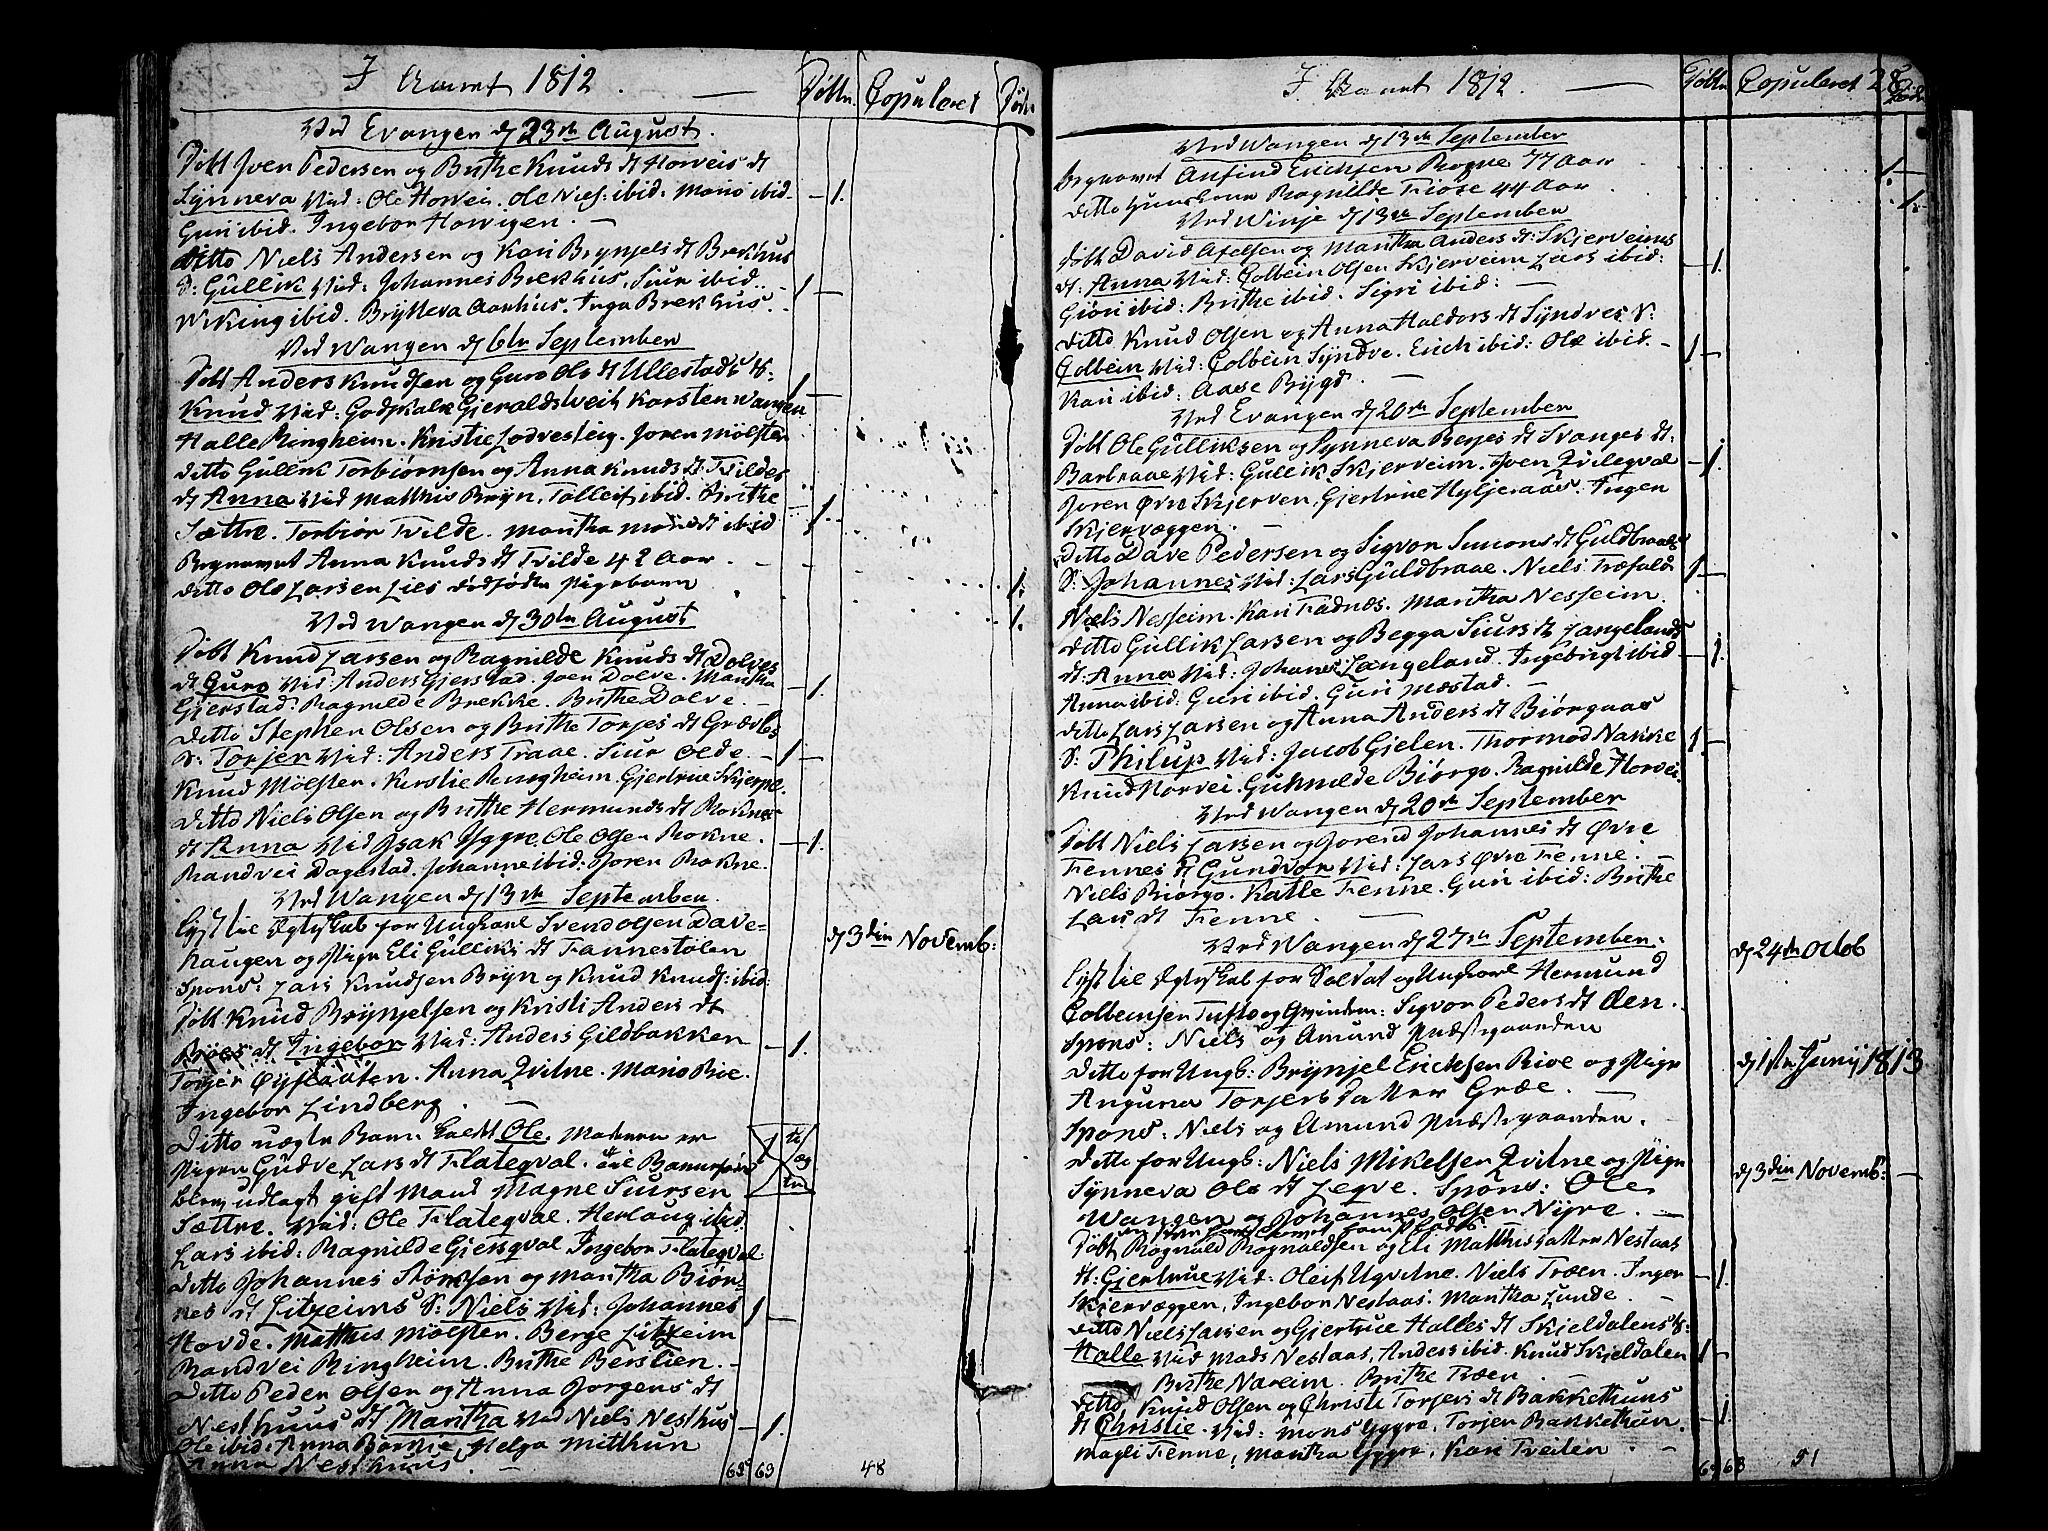 I Aaret 1812.
Døbte Copuleret Døde
Ved Evangen d 23de August.
Døbt Iver Pedersen og Brithe Knuds dt Horveis dt
Synneva Vid: Ole Horvei. Ole Niels: ibid. Mario ibid.
Guri ibid. Ingebor Horvigen. 1.
Ditto Niels Andersen og Kari Brynjels dt Brekhus
S: Gullik Vid: Johannes Brekhus. Siur ibid. 1
Viking ibid. Brytteva Aarhus. Inga Brekhus.
Ved Wangen d 6te September
Døbt Anders Knudsen og Guro Ols dt Ullestads S.
Knud Vid: Godskalk Gjeraldsveit Karsten Wangen 1
Halle Ringheim. Kristie Lodvesteig. Joren Mølster
Ditto Gullik Torbiørnsen og Anna Knuds dt Tvildes
dt Anna Vid Matthis Bryn. Tolleif ibid. Brithe
Sættre. Torbior Tvilde. Martha ibid 1.
Begravet Anna Knuds dt Tvilde 42 Aar
Ditto Ole Larsen Lies dødfødte Pigebarn 1.
Ved Wangen d 30te August 1.
Døbt Knud Larsen og Ragnilde Knuds dt Dolves
dt Guro Vid: Anders Gjerstad. Iver Dolve. Martha 1.
Gjerstad. Ragnilde Brekke. Brithe Dolve.
Ditto Stephen Olsen og Brithe Torjes dt Grævles
S: Torjer Vid: Anders Traae. Siur Olde 1
Knud Mølster. Kirstie Ringheim. Gjertrue Skjerpe.
Ditto Niels Olsen og Brithe Hermunds dt Roknes
dt Anna Vid Isak Yggre. Ole Olsen Rokne. 1.
Randvei Dagestad. Johanne ibid: Joren Rokne.
Ved Wangen d 13de September.
Lyst til Egteskab for Ungkarl Svend Olsen Dave-
haugen og Pige Eli Gulliks dt Fannestølen d 3die Novemb:
Spons: Lars Knudsen Bryn og Knud Knuds: ibid:
Døbt Knud Brynjelsen og Kristi Anders dt
dt Ingebor Vid: Anders Gildbakken 1.
Torjer Anna Zvitne. Mario Rie.
Ingebor Lindberg.
Ditto uægte Barn kaldt Ole. Moderen er
Pigen Gudve Lars dt Flateqval. til Barnefader
blev udlagt gift Mand Magne Siursen
Sættre. Vid: Ole Flateqval. Herlaug ibid.
Lars ibid: Ragnilde Gjersqval Ingebor Flateqval
Ditto Johannes Størksen og Martha Biør-
nes dt Litzeims S: Niels Vid: Johannes 1
Hovde. Matthis Mølster. Berge Litzeim
Randvei Ringheim. Brithe Berstien.
Ditto Peder Olsen og Anna Jorgens dt
Nesthuus dt Martha Vid Niels Nesthus 1.
Ole ibid: Anna Helga Mitthun
Anna Nesthuus.
69 48
I Aaret 1812
Døbte Copuleret 28 Døde
Ved Wangen d 13de September
Begravet Anfind Erichsen Rogne 77 Aar 1.
Ditto Ragnilde Fiøse 44 Aar 1.
Ved Winje d 13de September
Døbt David Axelsen og Martha Anders dt Skjerveims
dt: Anna Vid: Colbein Olsen Skjerveim Lars ibid: 1.
Giøri ibid: Brithe ibid. Sigri ibid:
Ditto Knud Olsen og Anna Haldors dt Syndves S:
Colbein Vid: Colbein Syndve. Erich ibid: Ole ibid. 1
Kari ibid: Aase Bygd.
Ved Evangen d 20de September
Døbt Ole Gulliksen og Synneva Berjes dt Evanges dt:
Barbraae Vid: Gullik Skjerveim. Iver Zvilegval 1.
Joren Øvre Skjerven. Gjertrue Inger
Skjervæggen.
Ditto Dave Pedersen og Sigvor Simons dt Guldbraaes
S: Johannes Vid: Lars Guldbraae. Niels Træfald 1
Niels Nesheim. Kari Fadnæs. Martha Nesheim.
Ditto Gullik Larsen og Begga Siurs dt Langelands
dt: Anna Vid: Johannes Langeland. Ingebirgt ibid 1.
Anna ibid: Guri ibid. Guri Mæstad.
Ditto Lars Larsen og Anna Anders dt Biørgaas
S: Philup Vid: Jacob Gjelen. Thormod Nakke 1
Knud Horvei. Gunnilde Biørgo. Ragnilde Horvei.
Ved Wangen d 20de September
Døbt Niels Larsen og Jorend Johannes dt Øvre
Fennes dt Gundvor Vid: Lars Øvre Fenne.
Niels Biørgo. Katle Fenne. Guri ibid: Brithe
Lars dt Fenne.
Ved Wangen d 27de September.
Lyst til Egteskab for Soldat og Ungkarl Hermund d 24de Octob
Colbeinsen Tufto og Qvinden: Sigvor Peders dt Øen.
Spons: Niels og Amund Præstegaarden
Ditto for Ungk: Brynjel Erichsen Rioe og Pige d 1ste Junij 1813
Anguna Torjers datter Græe.
Spons: Niels og Amund Præstegaarden.
Ditto for Ungk: Niels Mikelsen Zvitne og Pige
Synneva Ols dt Legve. Spons: Ole d 3die Novemb:
Wangen og Johannes Olsen Nyre.
Døbt Rognald Rognaldsen og Eli Matthis datter Nestaas
dt: Gjertrue Vid: Oleif Ugvitne. Niels Træen. Inger 1.
Skjervæggen. Ingebor Nestaas. Martha Lunde.
Ditto Niels Larsen og Gjertrue Halles dt Skjeldalens S:
Halle Vid Mads Nestaas. Anders ibid. Knud Skjeldalen 1
Brithe Nareim. Brithe Træen.
Ditto Knud Olsen og Christi Torjers dt Bakkethuns
dt Christie. Vid: Mons Yggre. Torjer Bakkethun. 1
Magli Fenne. Martha Yggre. Kari Tveiten
63 51